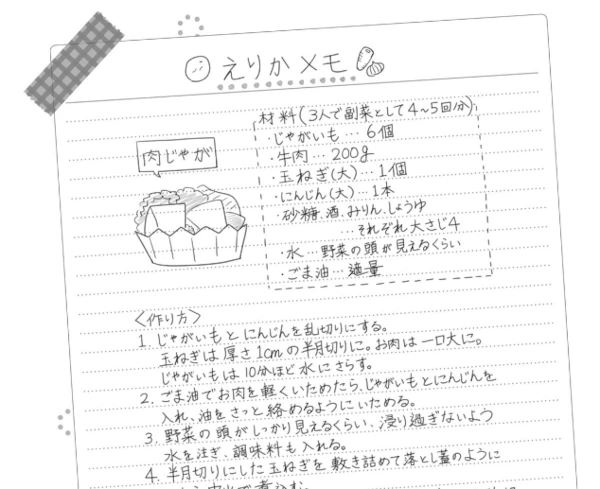 えりかメモ
材料(3人で副菜として4〜5回分)
・じゃがいも…6個
肉じゃが
・牛肉…200g
・玉ねぎ(大)…1個
・にんじん(大)…1本
・砂糖、酒、みりん、しょうゆ
…それぞれ大さじ4
・水…野菜の頭が見えるくらい
・ごま油…適量
<作り方>
1. じゃがいもとにんじんを乱切りにする。
玉ねぎは厚さ1cmの半月切りに。お肉は一口大に。
じゃがいもは10分ほど水にさらす。
2. ごま油でお肉を軽くいためたら、じゃがいもとにんじんを
入れ、油をさっと絡めるようにいためる。
3. 野菜の頭がしっかり見えるくらい、浸り過ぎないよう
水を注ぎ、調味料も入れる。
4. 半月切りにした玉ねぎを敷き詰めて落とし蓋のように